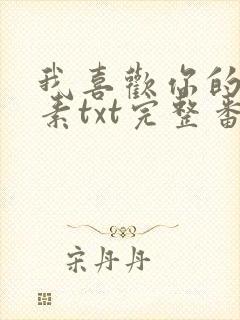 我喜歡你的
素txt完整番
宋丹丹